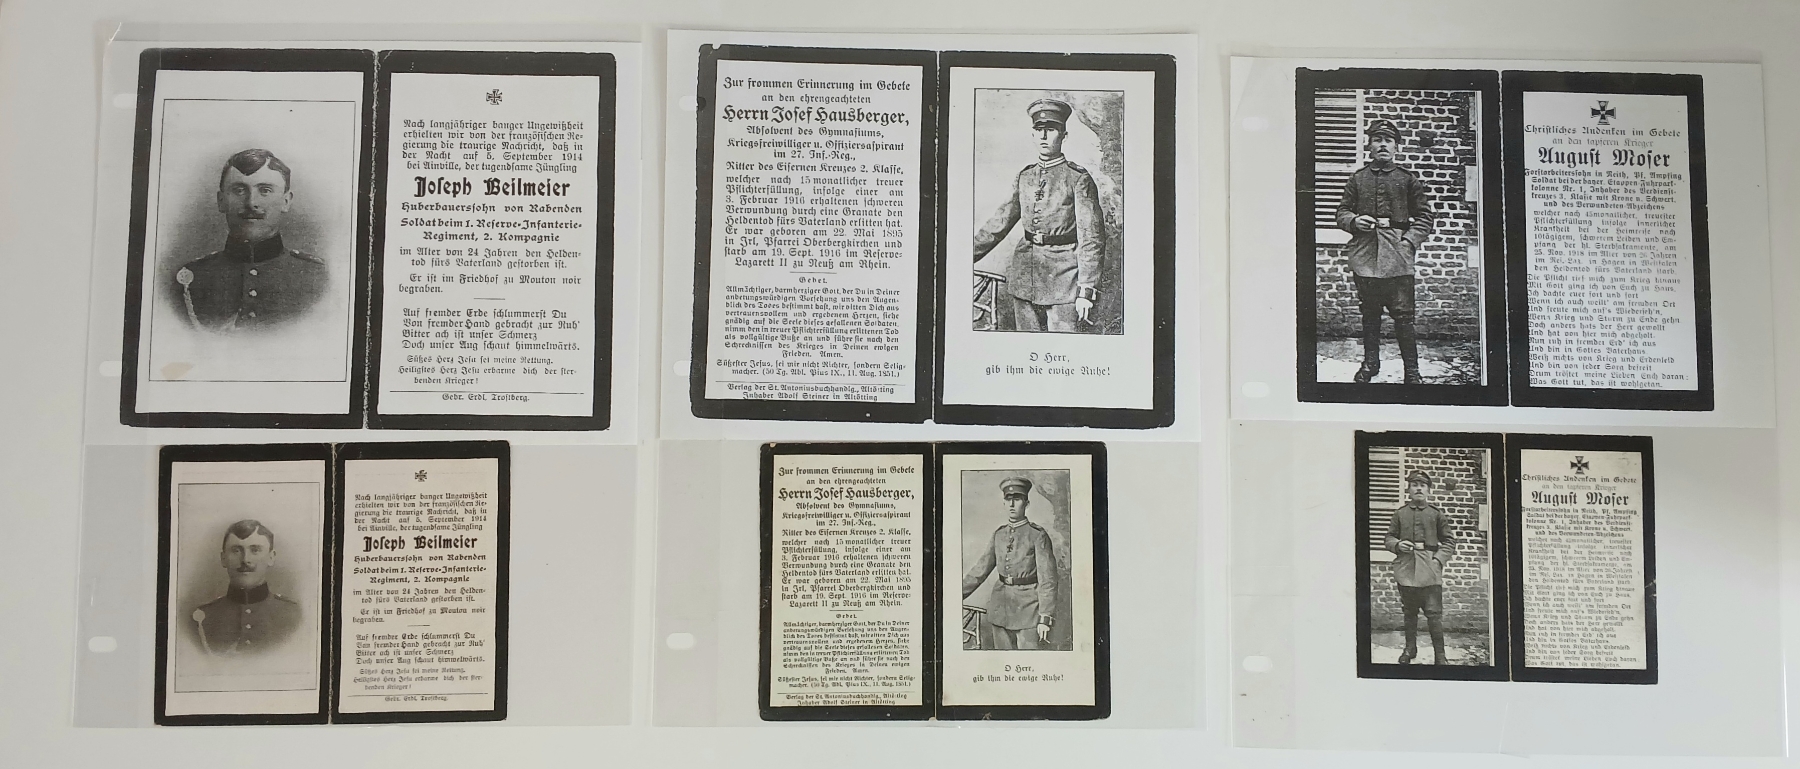 Nach langjähriger banger Ungewißheit
erhielten wir von der französischen Re-
gierung die traurige Nachricht, daß in
der Nacht auf 5. September 1914
bei Ainville, der tugendsame Jüngling
Joseph Beilmeier
Huberbauerssohn von Rabenden
Soldat beim 1. Reserve-Infanterie-
Regiment, 2. Kompagnie
im Alter von 24 Jahren den Helden-
tod fürs Vaterland gestorben ist.
Er ist im Friedhof zu Mouton noir
begraben.
Auf fremder Erde schlummerst Du
Von fremder Hand gebracht zur Ruh'
Bitter ach ist unser Schmerz
Doch unser Aug schaut himmelwärts.
Süßes Herz Jesu sei meine Rettung.
Heiligstes Herz Jesu erbarme dich der ster-
benden Krieger!
Gebr. Erdl, Trostberg.
Zur frommen Erinnerung im Gebete
an den ehrengeachteten
Herrn Josef Hausberger,
Absolvent des Gymnasiums,
Kriegsfreiwilliger u. Offiziersaspirant
im 27. Inf.-Reg.,
Ritter des Eisernen Kreuzes 2. Klasse,
welcher nach 15 monatlicher treuer
Pflichterfüllung, infolge einer am
3. Februar 1916 erhaltenen schweren
Verwundung durch eine Granate den
Heldentod fürs Vaterland erlitten hat.
Er war geboren am 22. Mai 1895
in Irl, Pfarrei Oberbergkirchen und
starb am 19. Sept. 1916 im Reserve-
Lazarett II zu Neuß am Rhein.
Gebet.
Allmächtiger, barmherziger Gott, der Du in Deiner
anbetungswürdigen Vorsehung uns den Augen-
blick des Todes bestimmt hast, wir bitten Dich aus
vertrauensvollem und ergebenem Herzen, siehe
gnädig auf die Seele dieses gefallenen Soldaten,
nimm den in treuer Pflichterfüllung erlittenen Tod
als vollgültige Buße an und führe sie nach den
Schrecknissen des Krieges in Deinen ewigen
Frieden. Amen.
Süßester Jesus, sei mir nicht Richter, sondern Selig-
macher. (50 Tg. Abl. Pius IX., 11. Aug. 1851.)
Verlag der St. Antoniusbuchhandlg., Altötting
Inhaber Adolf Steiner in Altötting
O Herr,
gib ihm die ewige Ruhe!
Christliches Andenken im Gebete
an den tapferen Krieger
August Moser
Forstarbeiterssohn in Reith, Pf. Ampfing
Soldat bei der bayer. Etappen-Fuhrpark-
kolonne Nr. 1, Inhaber des Verdienst-
kreuzes 3. Klasse mit Krone u. Schwert.
und des Verwundeten-Abzeichens
welcher nach 45monatlicher, treuester
Pflichterfüllung infolge innerlicher
Krankheit bei der Heimreise nach
10tägigem, schwerem Leiden und Em-
pfang der hl. Sterbsakramente, am
25. Nov. 1918 im Alter von 26 Jahren
im Res. Laz. in Hagen in Westfalen
den Heldentod fürs Vaterland starb.
Die Pflicht rief mich zum Krieg hinaus
Mit Gott ging ich von Euch zu Haus,
Ich dachte euer fort und fort
Wenn ich auch weilt' am fremden Ort
Und freute mich auf's Wiederseh'n.
Wenn Krieg und Sturm zu Ende gehn
Doch anders hats der Herr gewollt
Und hat von hier mich abgeholt.
Nun ruh in fremder Erd' ich aus
Und bin in Gottes Vaterhaus
Weiß nichts von Krieg und Erdenleid
Und bin von jeder Sorg befreit
Drum tröstet meine Lieben Euch daran:
Was Gott tut, das ist wohlgetan.
Nach langjähriger banger Ungewißheit
erhielten wir von der französischen Re-
gierung die traurige Nachricht, daß in
der Nacht auf 5. September 1914
bei Ainville, der tugendsame Jüngling
Joseph Beilmeier
Huberbauerssohn von Rabenden
Soldat beim 1. Reserve-Infanterie-
Regiment, 2. Kompagnie
im Alter von 24 Jahren den Helden-
tod fürs Vaterland gestorben ist.
Er ist im Friedhof zu Mouton noir
begraben.
Auf fremder Erde schlummerst Du
Von fremder Hand gebracht zur Ruh'
Bitter ach ist unser Schmerz
Doch unser Aug schaut himmelwärts.
Süßes Herz Jesu sei meine Rettung.
Heiligstes Herz Jesu erbarme dich der ster-
benden Krieger!
Gebr. Erdl, Trostberg.
Zur frommen Erinnerung im Gebete
an den ehrengeachteten
Herrn Josef Hausberger,
Absolvent des Gymnasiums,
Kriegsfreiwilliger u. Offiziersaspirant
im 27. Inf.-Reg.,
Ritter des Eisernen Kreuzes 2. Klasse,
welcher nach 15 monatlicher treuer
Pflichterfüllung, infolge einer am
3. Februar 1916 erhaltenen schweren
Verwundung durch eine Granate den
Heldentod fürs Vaterland erlitten hat.
Er war geboren am 22. Mai 1895
in Irl, Pfarrei Oberbergkirchen und
starb am 19. Sept. 1916 im Reserve-
Lazarett II zu Neuß am Rhein.
Gebet.
Allmächtiger, barmherziger Gott, der Du in Deiner
anbetungswürdigen Vorsehung uns den Augen-
blick des Todes bestimmt hast, wir bitten Dich aus
vertrauensvollem und ergebenem Herzen, siehe
gnädig auf die Seele dieses gefallenen Soldaten,
nimm den in treuer Pflichterfüllung erlittenen Tod
als vollgültige Buße an und führe sie nach den
Schrecknissen des Krieges in Deinen ewigen
Frieden. Amen.
Süßester Jesus, sei mir nicht Richter, sondern Selig-
macher. (50 Tg. Abl. Pius IX., 11. Aug. 1851.)
Verlag der St. Antoniusbuchhandlg., Altötting
Inhaber Adolf Steiner in Altötting
O Herr,
gib ihm die ewige Ruhe!
Christliches Andenken im Gebete
an den tapferen Krieger
August Moser
Forstarbeiterssohn in Reith, Pf. Ampfing
Soldat bei der bayer. Etappen-Fuhrpark-
kolonne Nr. 1, Inhaber des Verdienst-
kreuzes 3. Klasse mit Krone u. Schwert.
und des Verwundeten-Abzeichens